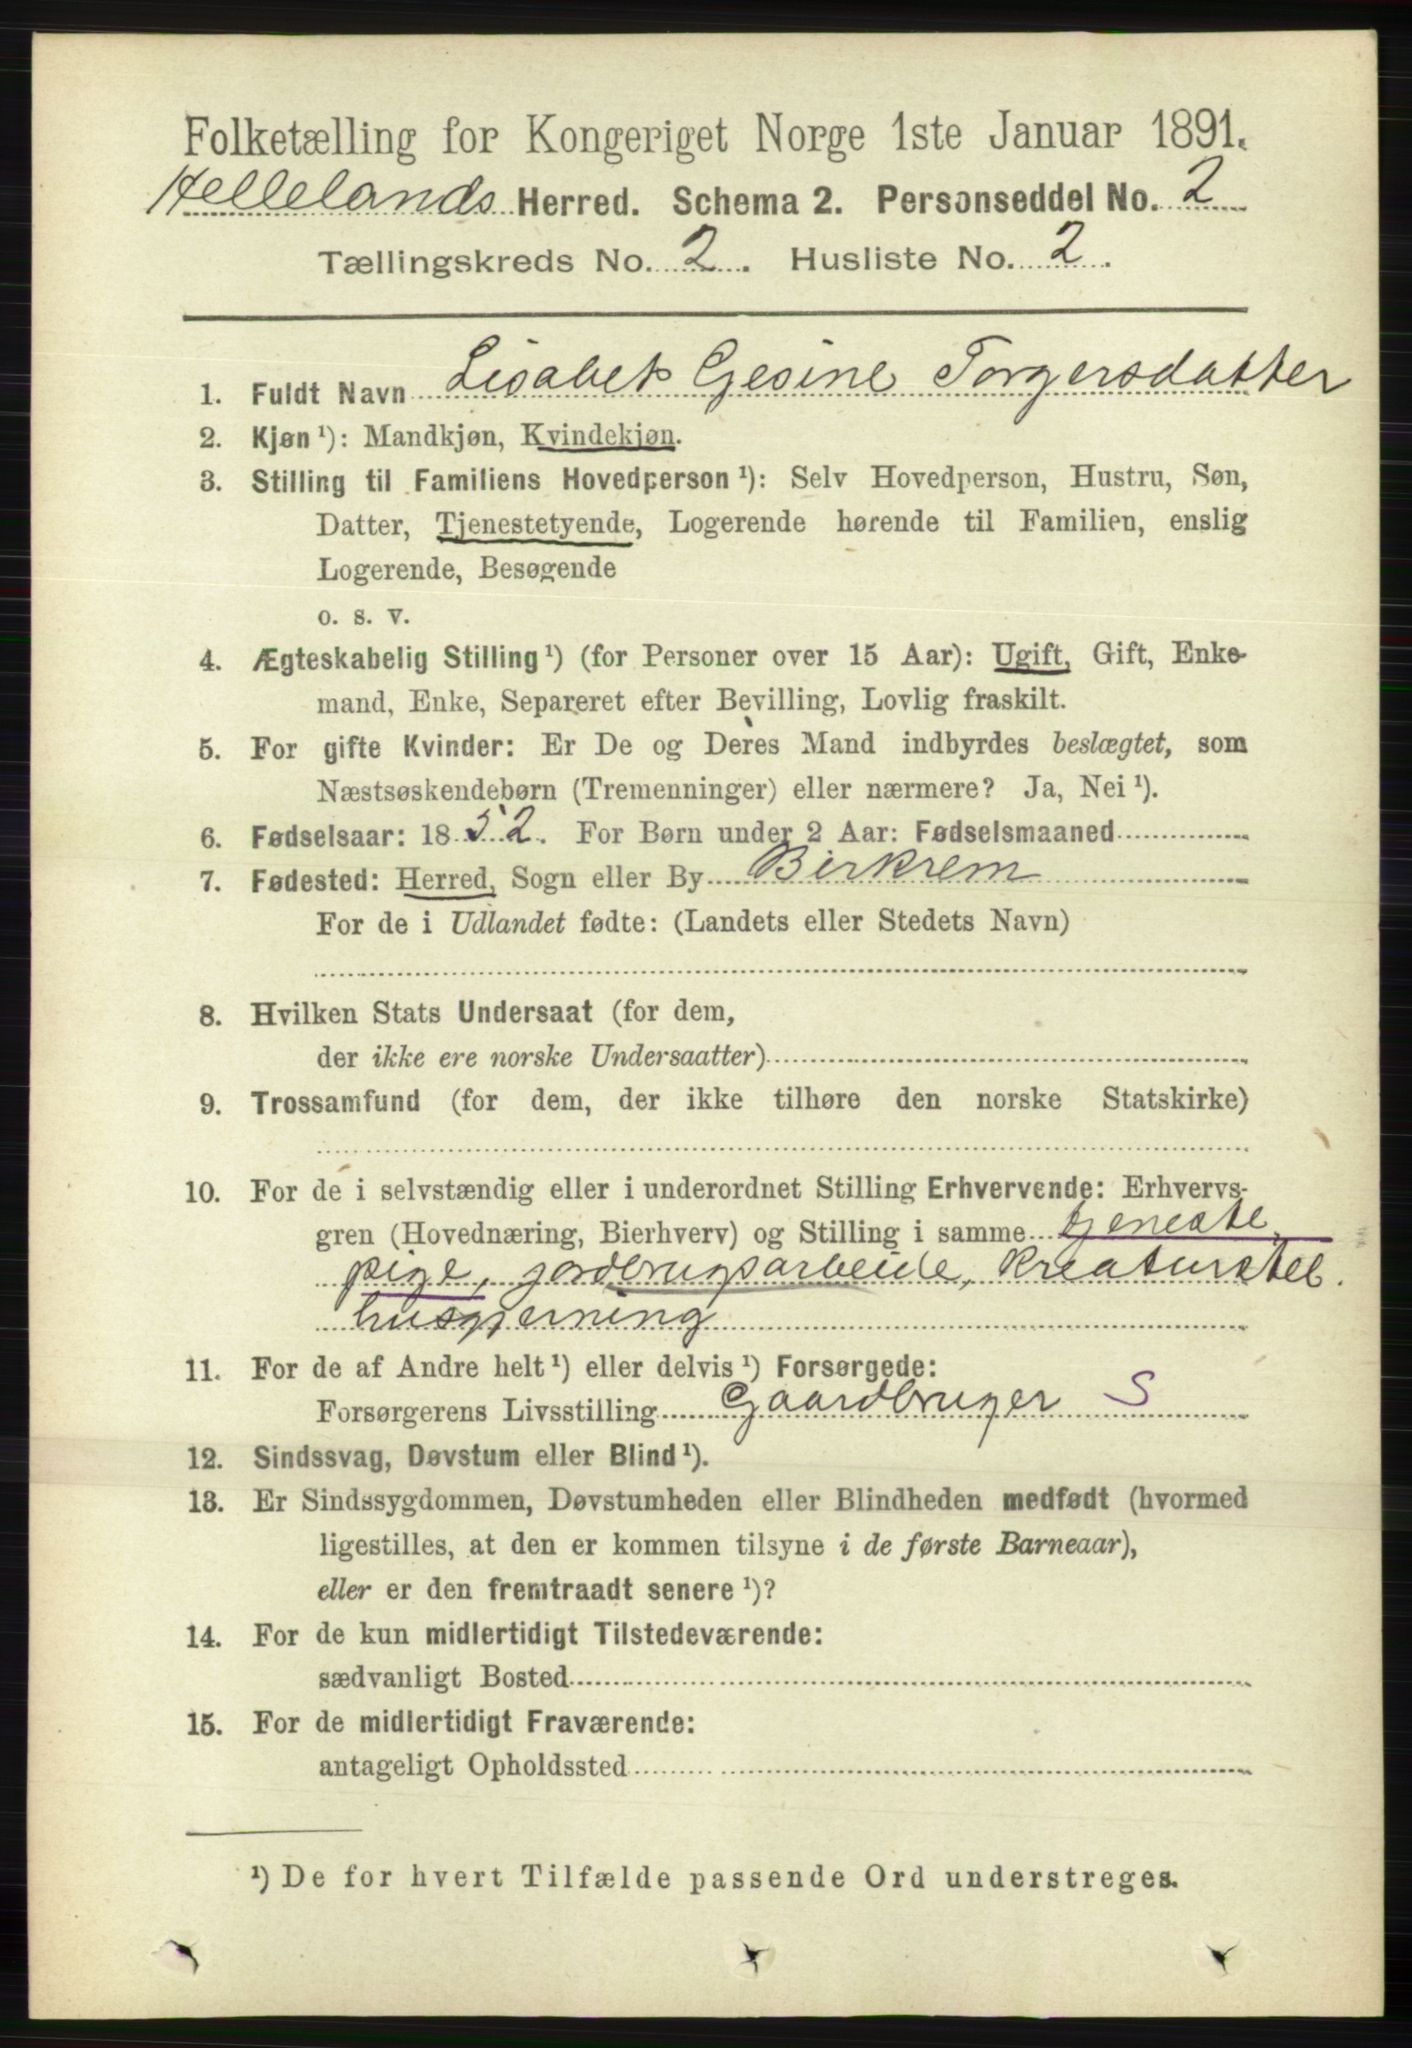 Folketælling for Kongeriget Norge 1ste Januar 1891.
Hellelands Herred. Schema 2. Personseddel No. 2
Tællingskreds No. 2. Husliste No. 2.
1. Fuldt Navn Lisabet Gesine Torgersdatter
2. Kjøn ¹): Mandkjøn, Kvindekjøn.
3. Stilling til Familiens Hovedperson ¹): Selv Hovedperson, Hustru, Søn,
Datter, Tjenestetyende, Logerende hørende til Familien, enslig
Logerende, Besøgende
o. s. v.
4. Ægteskabelig Stilling ¹) (for Personer over 15 Aar): Ugift, Gift, Enke-
mand, Enke, Separeret efter Bevilling, Lovlig fraskilt.
5. For gifte Kvinder: Er De og Deres Mand indbyrdes beslægtet, som
Næstsøskendebørn (Tremenninger) eller nærmere? Ja, Nei ¹).
6. Fødselsaar: 1852. For Børn under 2 Aar: Fødselsmaaned
7. Fødested: Herred, Sogn eller By Birkrem
For de i Udlandet fødte: (Landets eller Stedets Navn)
8. Hvilken Stats Undersaat (for dem,
der ikke ere norske Undersaatter)
9. Trossamfund (for dem, der ikke tilhøre den norske Statskirke)
10. For de i selvstændig eller i underordnet Stilling Erhvervende: Erhvervs-
gren (Hovednæring, Bierhverv) og Stilling i samme tjeneste
pige, jordbrugsarbeide, kreaturstel.
husgjerning
11. For de af Andre helt ¹) eller delvis ¹) Forsørgede:
Forsørgerens Livsstilling Gaardbruger S
12. Sindssvag, Døvstum eller Blind ¹).
13. Er Sindssygdommen, Døvstumheden eller Blindheden medfødt (hvormed
ligestilles, at den er kommen tilsyne i de første Barneaar),
eller er den fremtraadt senere ¹)?
14. For de kun midlertidigt Tilstedeværende:
sædvanligt Bosted
15. For de midlertidigt Fraværende:
antageligt Opholdssted
¹) De for hvert Tilfælde passende Ord understreges.